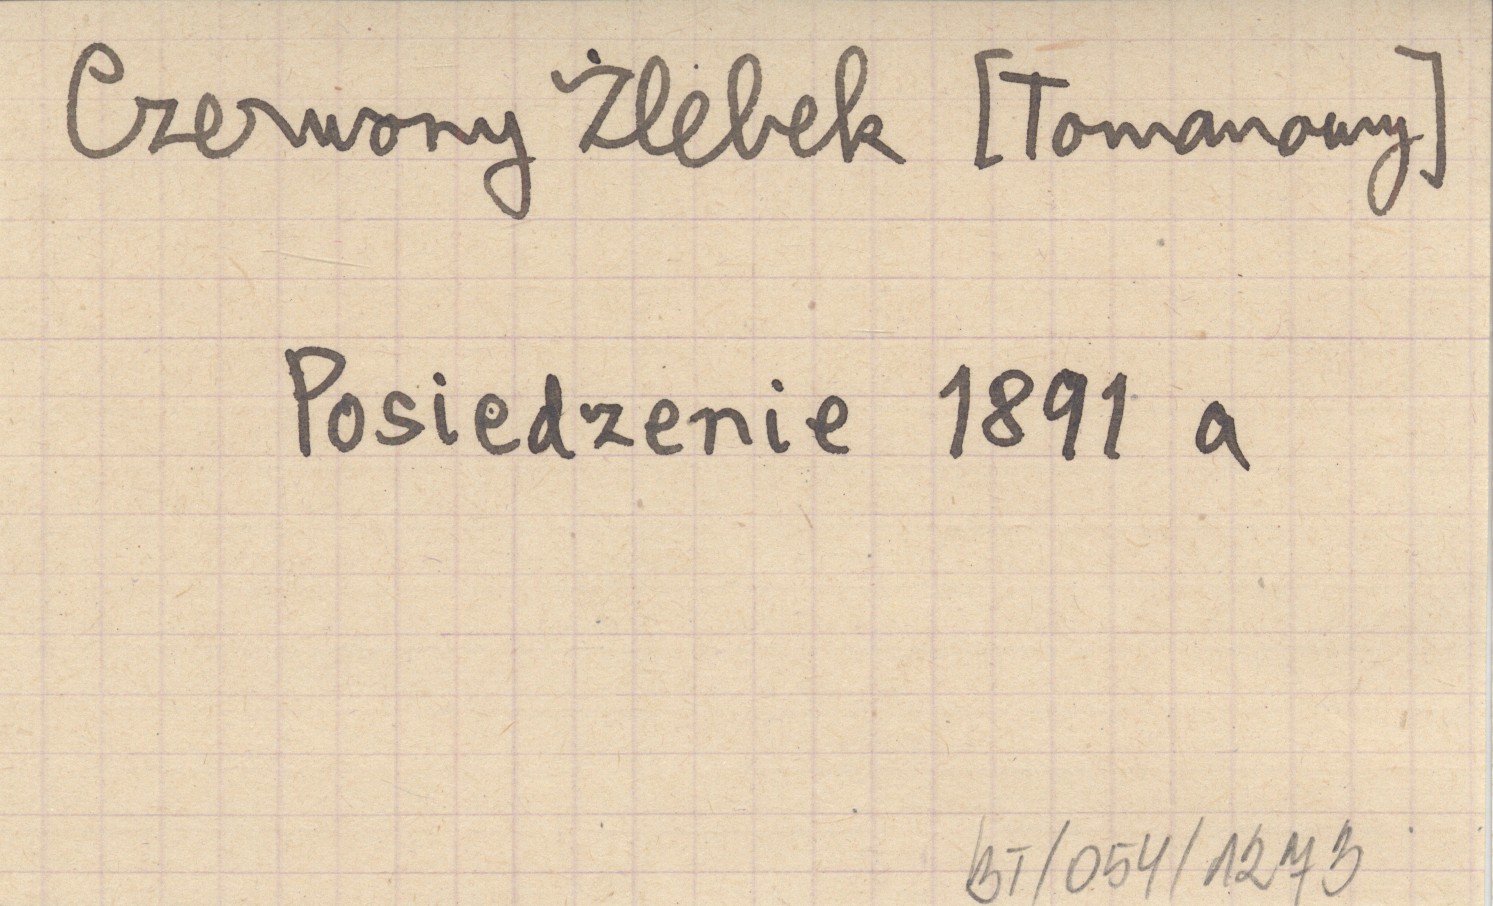 Czerwony Żlebek [Tomanowy]
Posiedzenie 1891 a
BT/054/1273